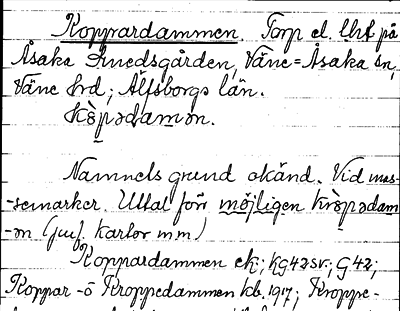 Koppardammen. Torp el. lht på
Åsaka Smedsgården, Väne=Åsaka sn,
Väne hrd; Älfsborgs län.
kòpədamən.
Namnets grund okänd. Vid mas-
-semarker. Uttal förr möjligen kròpədam
-ən (jmf. kartor mm)
Koppardammen ek; kg42sv.; G42;
Koppar -ö Kroppedammen kb. 1917; Kroppe-